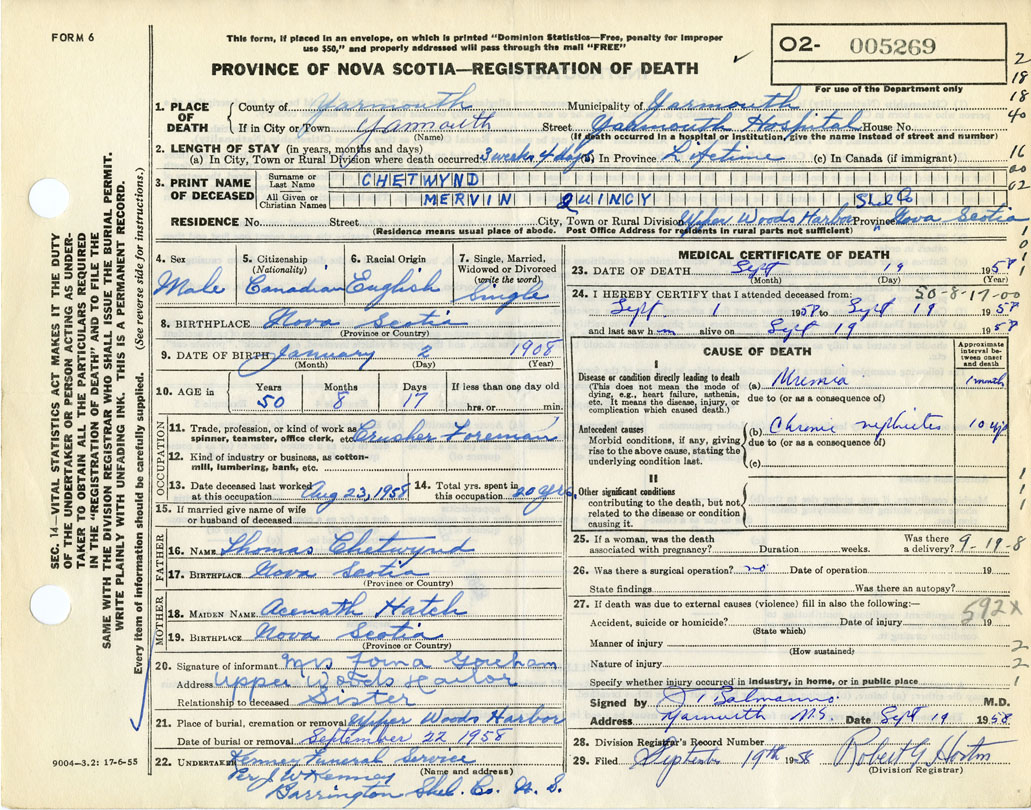 FORM 6
This form, if placed in an envelope, on which is printed "Dominion Statistics—Free, penalty for improper
use $50," and properly addressed will pass through the mail "FREE"
PROVINCE OF NOVA SCOTIA—REGISTRATION OF DEATH
O2- 005269
For use of the Department only
2
18
18
40
16
00
02
1
0
1
1
1
1. PLACE OF DEATH { County of Yarmouth Municipality of Yarmouth
If in City or Town Yarmouth Street Yarmouth Hospital House No.
(Name) (If death occurred in a hospital or institution, give the name instead of street and number)
2. LENGTH OF STAY (in years, months and days)
(a) In City, Town or Rural Division where death occurred 3 weeks 4 days (b) In Province Lifetime (c) In Canada (if immigrant)
3. PRINT NAME OF DECEASED { Surname or Last Name CHETWYND
All Given or Christian Names MERVIN QUINCY
Shel Co
RESIDENCE No. Street City, Town or Rural Division Upper Woods Harbor Province Nova Scotia
(Residence means usual place of abode. Post Office Address for residents in rural parts not sufficient)
4. Sex Male
5. Citizenship (Nationality) Canadian
6. Racial Origin English
7. Single, Married, Widowed or Divorced (write the word) Single
8. BIRTHPLACE Nova Scotia
(Province or Country)
9. DATE OF BIRTH January 2 1908
(Month) (Day) (Year)
10. AGE in Years 50 Months 8 Days 17 If less than one day old
hrs. or min.
OCCUPATION
11. Trade, profession, or kind of work as spinner, teamster, office clerk, etc. Crusher Foreman
12. Kind of industry or business, as cotton-mill, lumbering, bank, etc.
13. Date deceased last worked at this occupation Aug 23, 1958
14. Total yrs. spent in this occupation 20 yrs.
15. If married give name of wife or husband of deceased
FATHER
16. NAME Thomas Chetwynd
17. BIRTHPLACE Nova Scotia
(Province or Country)
MOTHER
18. MAIDEN NAME Acenath Hatch
19. BIRTHPLACE Nova Scotia
(Province or Country)
20. Signature of informant Mrs Goreham
Address Upper Woods Harbor
Relationship to deceased Sister
21. Place of burial, cremation or removal Upper Woods Harbor
Date of burial or removal September 22 1958
22. UNDERTAKER Kenney Funeral Service
Per J W Kenney
(Name and address)
Barrington Shel. Co. N. S.
MEDICAL CERTIFICATE OF DEATH
23. DATE OF DEATH Sept 19 1958
(Month) (Day) (Year)
24. I HEREBY CERTIFY that I attended deceased from: 50-8-17-00
Sept 1 1958 to Sept 19 1958
and last saw him alive on Sept 19 1958
CAUSE OF DEATH
Approximate interval between onset and death
I
Disease or condition directly leading to death
(This does not mean the mode of dying, e.g., heart failure, asthenia, etc. It means the disease, injury, or complication which caused death.)
(a) Uremia 1 month
due to (or as a consequence of)
Antecedent causes
Morbid conditions, if any, giving rise to the above cause, stating the underlying condition last.
(b) Chronic nephrites 10 yrs
due to (or as a consequence of)
(c)
II
Other significant conditions
contributing to the death, but not related to the disease or condition causing it.
1
1
1
25. If a woman, was the death associated with pregnancy? Duration weeks. Was there a delivery?
9-19-8
26. Was there a surgical operation? no Date of operation 19
State findings Was there an autopsy?
27. If death was due to external causes (violence) fill in also the following:—
592x
Accident, suicide or homicide? Date of injury 19
(State which)
Manner of injury 2
(How sustained)
Nature of injury 2
Specify whether injury occurred in industry, in home, or in public place 1
Signed by J T Balmanno M.D.
Address Yarmouth N.S. Date Sept 19 1958
28. Division Registrar's Record Number
29. Filed September 19th 1958 Robert G Horton
(Division Registrar)
SEC. 14—VITAL STATISTICS ACT MAKES IT THE DUTY
OF THE UNDERTAKER OR PERSON ACTING AS UNDER-
TAKER TO OBTAIN ALL THE PARTICULARS REQUIRED
IN THE "REGISTRATION OF DEATH" AND TO FILE THE
SAME WITH THE DIVISION REGISTRAR WHO SHALL ISSUE THE BURIAL PERMIT.
WRITE PLAINLY WITH UNFADING INK. THIS IS A PERMANENT RECORD.
Every item of information should be carefully supplied. (See reverse side for instructions.)
9004-3.2: 17-6-55